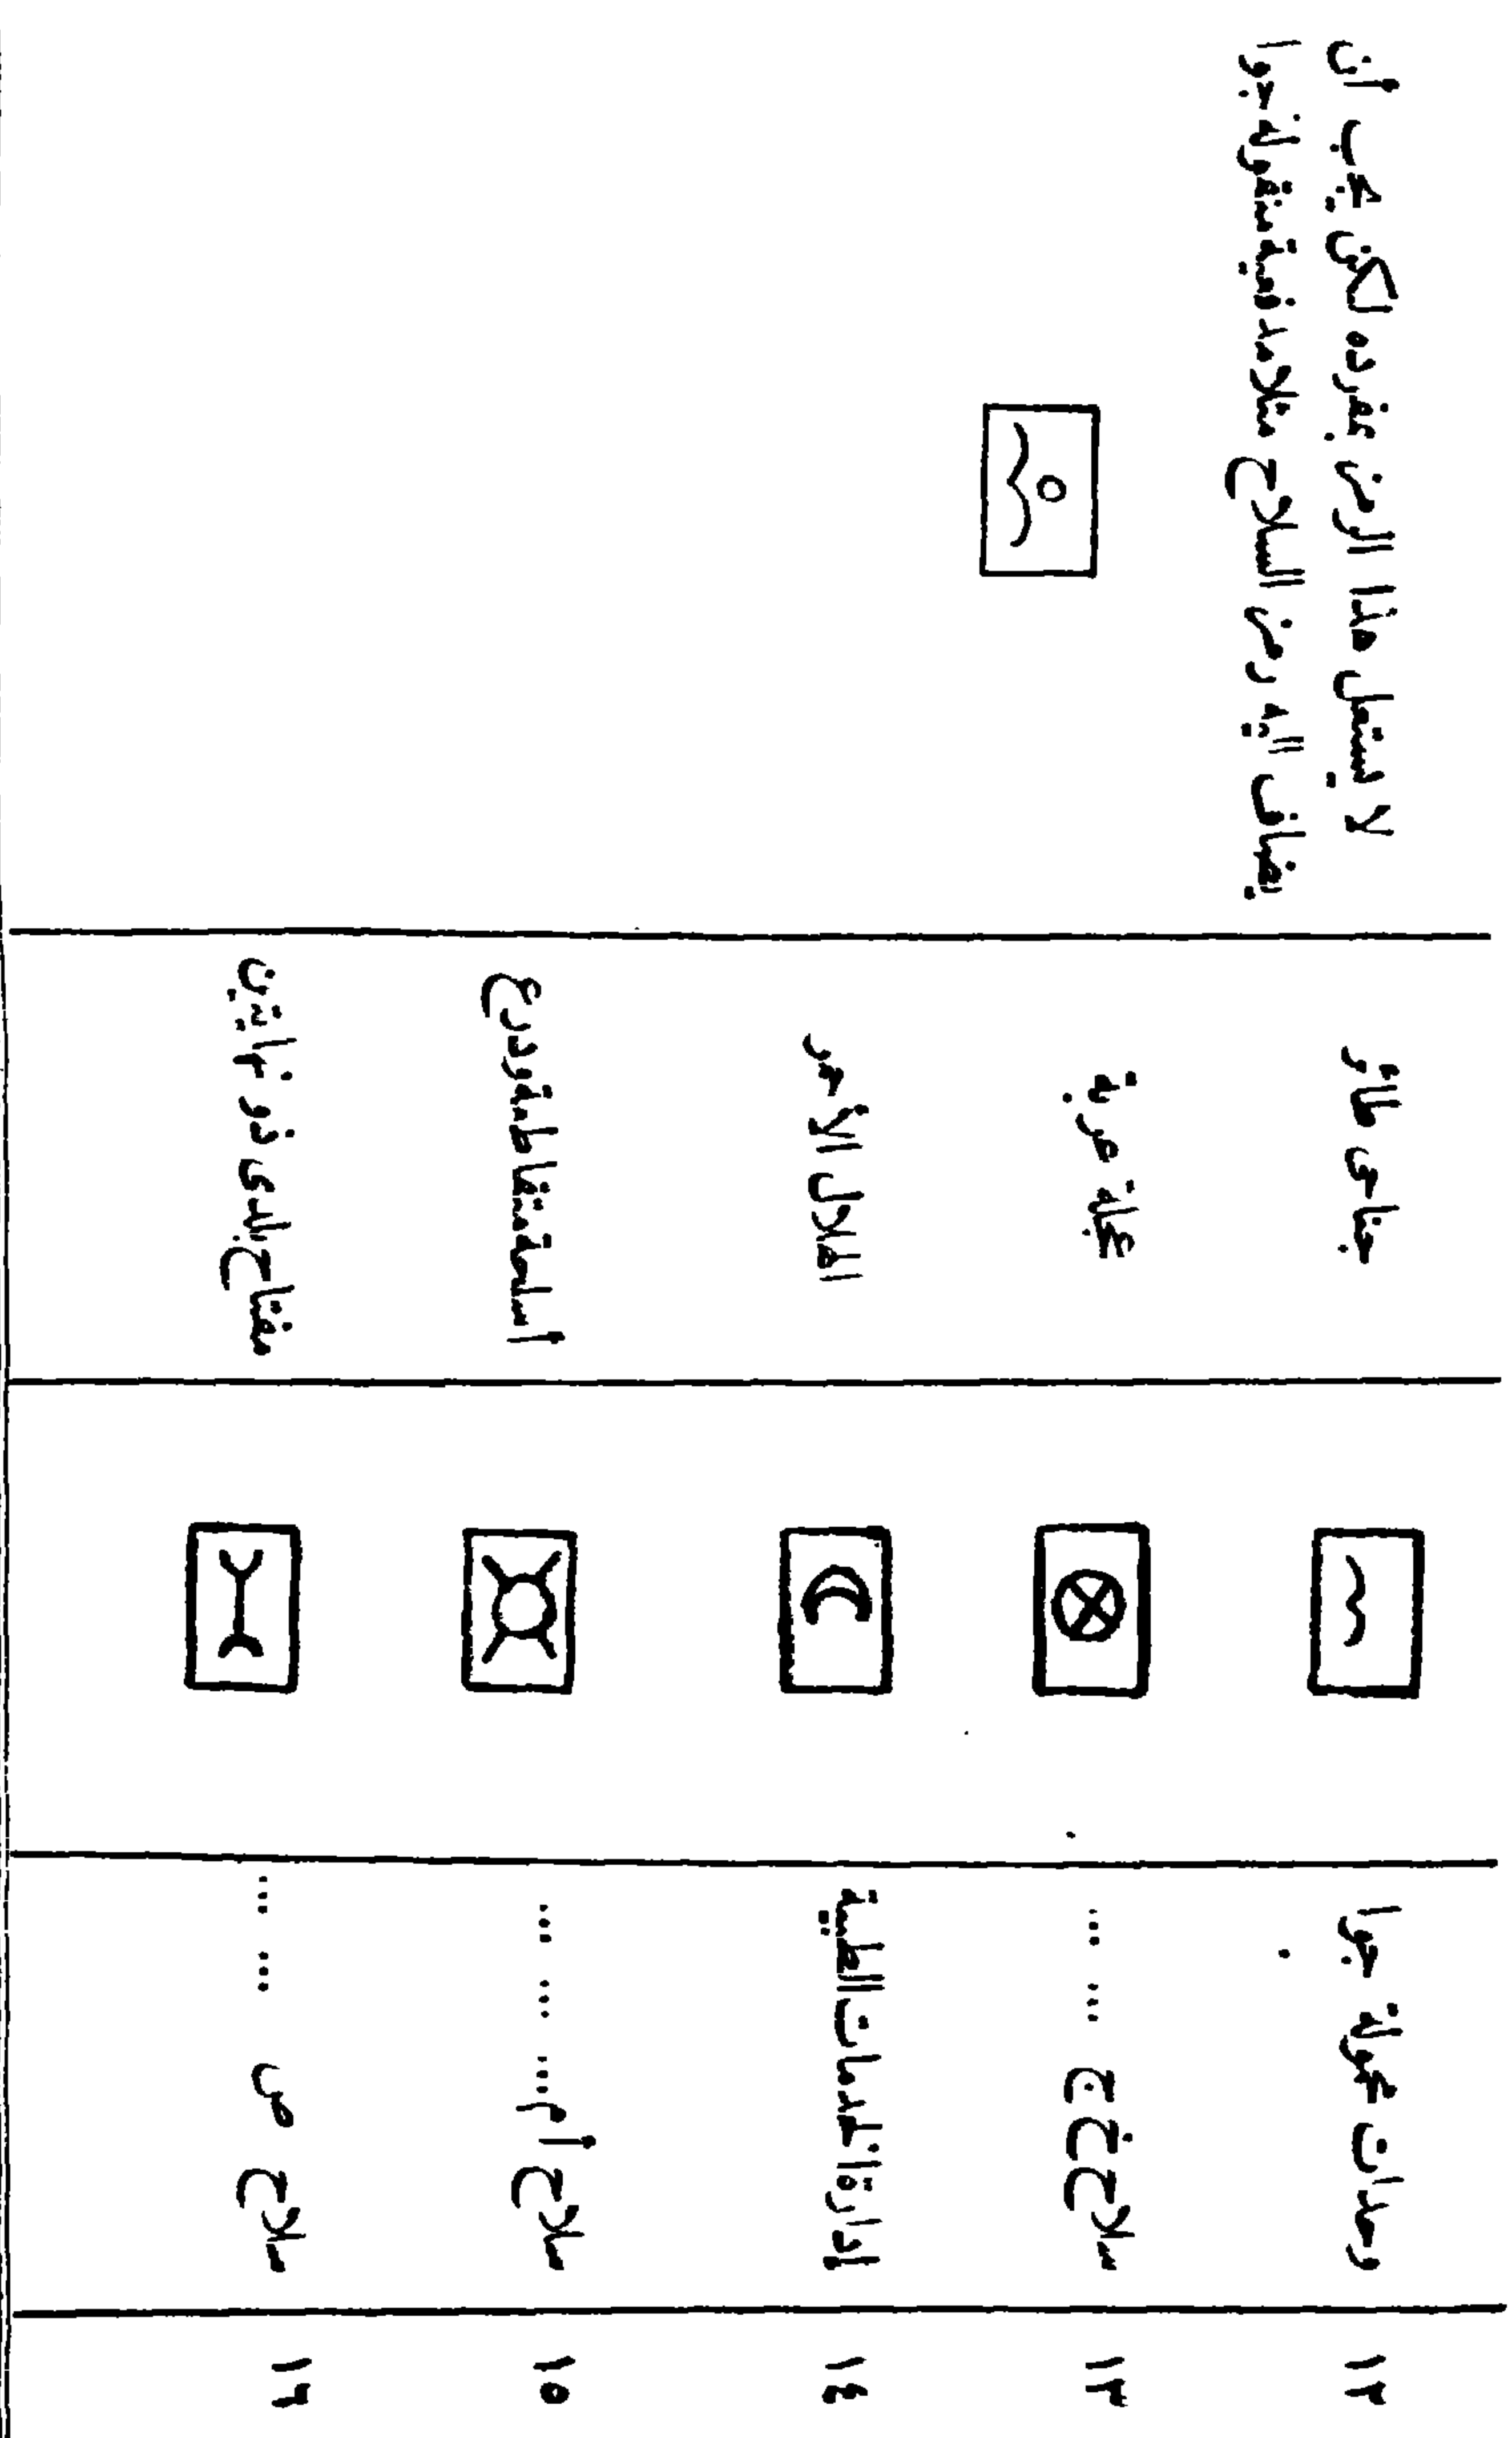 ١٢ وحدات محمولة جوا جناحى طائر لا يستعمل هذا الرمز بمفرده لكن يجب أن
يضاف اليه رمز السلاح مثلا مدفعية منقولة جوا
١٣ سلاح خ ج ... ... عجلة عربة
١٤ إدارة الخدمات الطبية الهلال الأحمر
١٥ سلاح أ م ... ... ... أسلحة متقاطعة ودرع
١٦ سلاح ص ... ... مفتاح بلدى ذو نهايتين